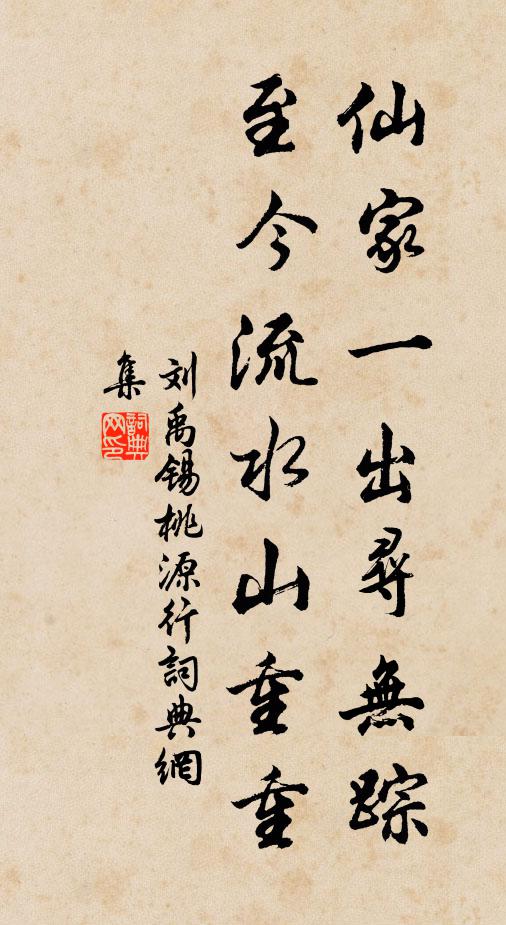 仙家一出尋無踪
至今流水山重重
刘禹锡桃源行詞典網
集
詞典网印